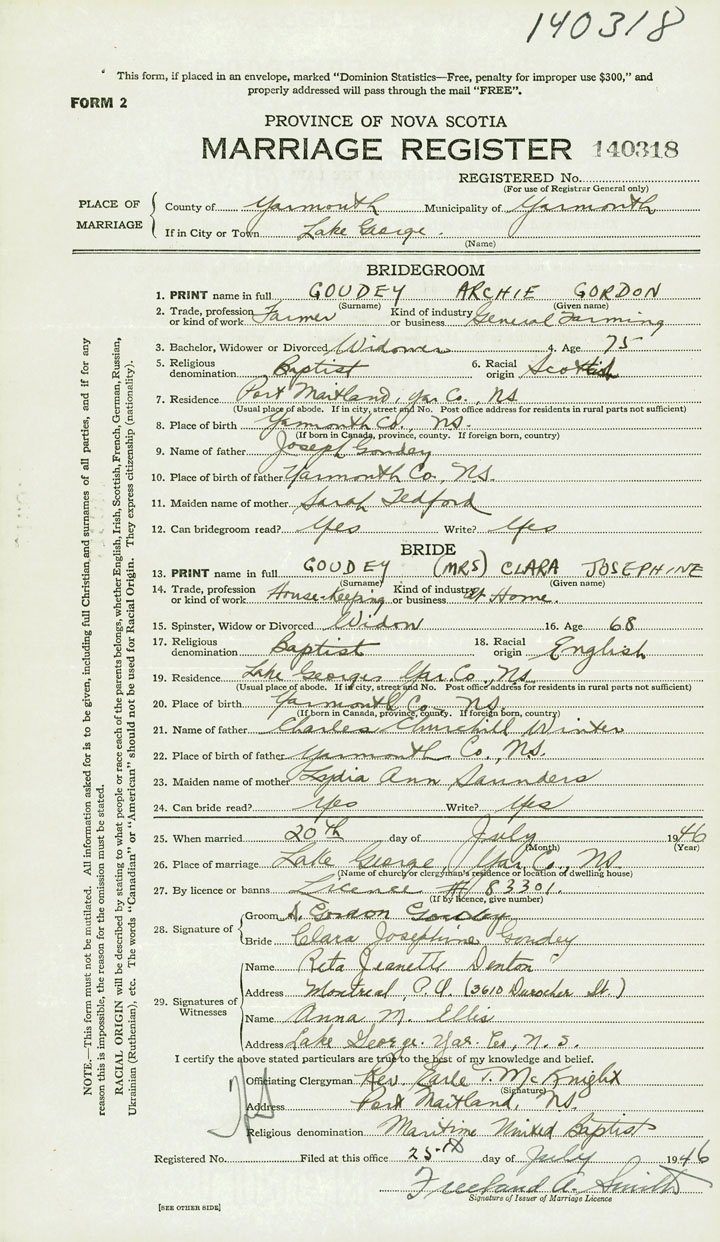 140318
This form, if placed in an envelope, marked "Dominion Statistics—Free, penalty for improper use $300," and
properly addressed will pass through the mail "FREE".
FORM 2
PROVINCE OF NOVA SCOTIA
MARRIAGE REGISTER 140318
REGISTERED No.
(For use of Registrar General only)
PLACE OF MARRIAGE
County of Yarmouth Municipality of Yarmouth
If in City or Town Lake George.
(Name)
BRIDEGROOM
1. PRINT name in full GOUDEY ARCHIE GORDON
(Surname) (Given name)
2. Trade, profession or kind of work Farmer Kind of industry or business General Farming
3. Bachelor, Widower or Divorced Widower 4. Age 75
5. Religious denomination Baptist 6. Racial origin Scottish
7. Residence Port Maitland, Yar Co., NS
(Usual place of abode. If in city, street and No. Post office address for residents in rural parts not sufficient)
8. Place of birth Yarmouth Co., NS.
(If born in Canada, province, county. If foreign born, country)
9. Name of father Joseph Goudey
10. Place of birth of father Yarmouth Co., NS.
11. Maiden name of mother Sarah Tedford
12. Can bridegroom read? Yes Write? Yes
BRIDE
13. PRINT name in full GOUDEY (MRS) CLARA JOSEPHINE
(Surname) (Given name)
14. Trade, profession or kind of work House-Keeping Kind of industry or business At Home.
15. Spinster, Widow or Divorced Widow 16. Age 68
17. Religious denomination Baptist 18. Racial origin English
19. Residence Lake George, Yar. Co., NS
(Usual place of abode. If in city, street and No. Post office address for residents in rural parts not sufficient)
20. Place of birth Yarmouth Co., NS.
(If born in Canada, province, county. If foreign born, country)
21. Name of father Charles Churchill Winter
22. Place of birth of father Yarmouth Co., NS.
23. Maiden name of mother Lydia Ann Saunders
24. Can bride read? Yes Write? Yes
25. When married 20th day of July 1946
(Month) (Year)
26. Place of marriage Lake George, Yar Co., NS
(Name of church or clergyman's residence or location of dwelling house)
27. By licence or banns Licence # 83301.
(If by licence, give number)
28. Signature of
Groom A. Gordon Goudey
Bride Clara Josephine Goudey
29. Signatures of Witnesses
Name Rita Jeanette Denton
Address Montreal, P.Q. (3610 Durocher St.)
Name Anna M. Ellis
Address Lake George. Yar. Co, N. S.
I certify the above stated particulars are true to the best of my knowledge and belief.
Officiating Clergyman Rev. Earle T. McKnight
(Signature)
Address Port Maitland, NS.
Religious denomination Maritime United Baptist
Registered No. Filed at this office 25th day of July 1946
Freeland A. Smith
Signature of Issuer of Marriage Licence
[SEE OTHER SIDE]
NOTE.—This form must not be mutilated. All information asked for is to be given, including full Christian and surnames of all parties, and if for any
reason this is impossible, the reason for the omission must be stated.
RACIAL ORIGIN will be described by stating to what people or race each of the parents belongs, whether English, Irish, Scottish, French, German, Russian,
Ukrainian (Ruthenian), etc. The words "Canadian" or "American" should not be used for Racial Origin. They express citizenship (nationality).